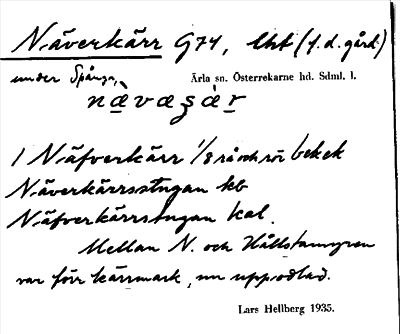 Näverkärr G74, lht (f.d. gård)
under Spånga, Ärla sn. Österrekarne hd. Sdml. l.
1 Näfverkärr 1/8 rå och rör bekek
Näverkärrsstugan kb
Näfverkärrstugan kal.
Mellan N. och Hållstamyren
var förr kärrmark, nu uppodlad.
Lars Hellberg 1935.